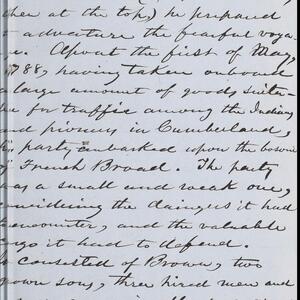 her at the top,) he prepared
to adventure the fearful voya-
. About the first of May,
1788, having taken onboard
a large amount of goods suita-
ble for traffic among the Indians
and pioneers in Cumberland,
his party embarked upon the bosom
of French Broad. The party
was a small and weak one,
considering the dangers it had
encounter, and the valuable
cargo it had to defend.
It consisted of Brown, two
grown sons, three hired men and